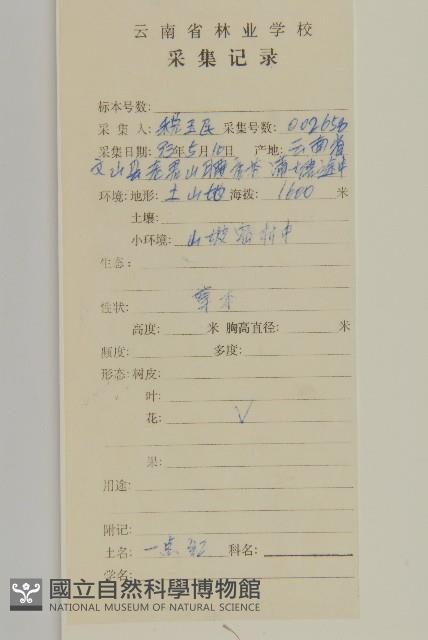 云南省林业学校
采集记录
标本号数:
采集人: 税玉民 采集号数: 002656
采集日期: 93年5月10日 产地: 云南省
文山县老君山
环境: 地形: 土山地 海拨: 1600 米
土壤:
小环境: 山坡密林中
生态:
性状: 草本
高度: 米 胸高直径: 米
频度: 多度:
形态: 树皮:
叶:
花: √
果:
用途:
附记:
土名: 一点红 科名:
学名:
國立自然科學博物館
NATIONAL MUSEUM OF NATURAL SCIENCE